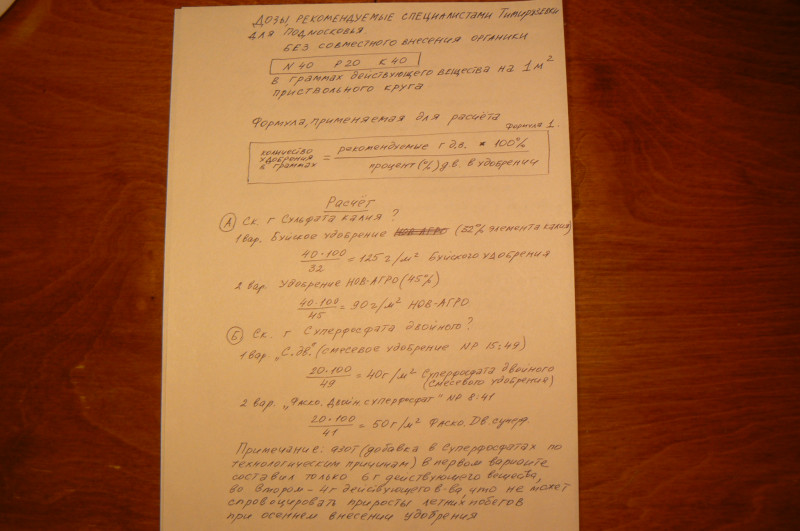 ДОЗЫ, РЕКОМЕНДУЕМЫЕ СПЕЦИАЛИСТАМИ Тимирязевки
ДЛЯ ПОДМОСКОВЬЯ.
БЕЗ СОВМЕСТНОГО ВНЕСЕНИЯ ОРГАНИКИ
N 40 P 20 K 40
В ГРАММАХ ДЕЙСТВУЮЩЕГО ВЕЩЕСТВА НА 1 м²
ПРИСТВОЛЬНОГО КРУГА
Формула, применяемая для расчёта
формула 1.
количество удобрения в граммах = рекомендуемые г д.в. * 100% / процент (%) д.в. в удобрении
Расчёт
А Ск. г Сульфата калия?
1 вар. Буйское удобрение НОВ-АГРО (52% элемента калия)
40*100 / 32 = 125 г/м² Буйского удобрения
2 вар. Удобрение НОВ-АГРО (45%)
40*100 / 45 = 90 г/м² НОВ-АГРО
Б Ск. г Суперфосфата двойного?
1 вар. „С.дв." (смесевое удобрение NP 15:49)
20*100 / 49 = 40 г/м² Суперфосфата двойного
(смесевого удобрения)
2 вар. „Фаско. Двойн. суперфосфат" NP 8:41
20*100 / 41 = 50 г/м² Фаско. Дв. суперф.
Примечание: азот (добавка в суперфосфатах по
технологическим причинам) в первом варианте
составил только 6 г действующего вещества,
во втором - 4 г действующего в-ва, что не может
спровоцировать приросты летних побегов
при осеннем внесении удобрения